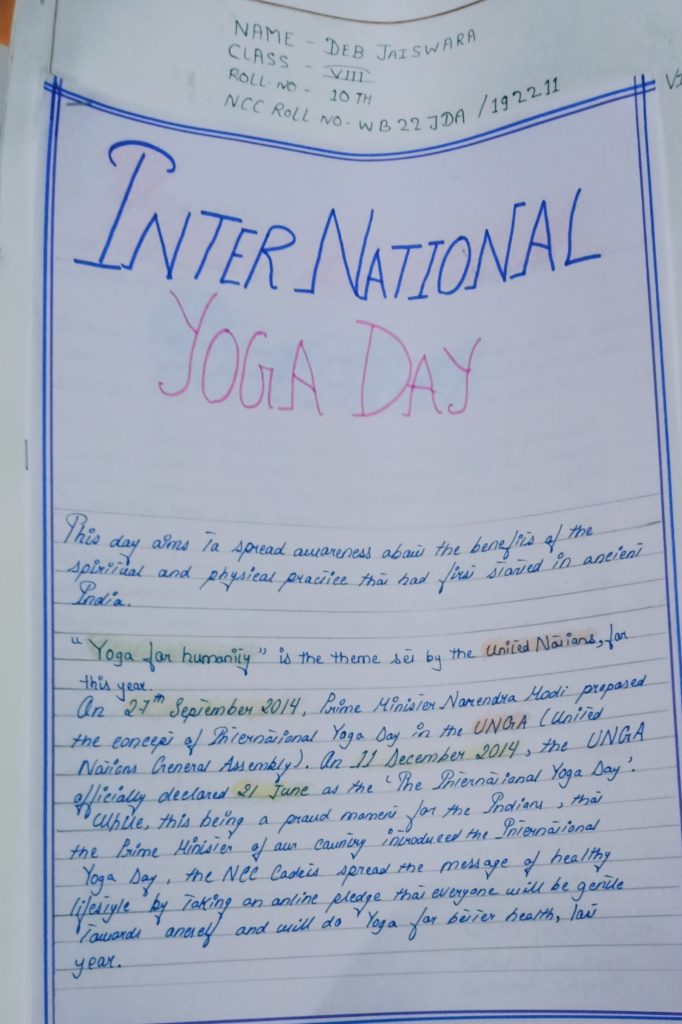 NAME - DEB JAISWARA
CLASS - VIII
ROLL NO - 10TH
NCC ROLL NO - WB22JDA/192211
INTERNATIONAL
YOGA DAY
This day aims to spread awareness about the benefits of the
spiritual and physical practice that had first started in ancient
India.
"Yoga for humanity" is the theme set by the United Nations, for
this year.
On 27th September 2014, Prime Minister Narendra Modi proposed
the concept of International Yoga Day in the UNGA (United
Nations General Assembly). On 11 December 2014, the UNGA
officially declared 21 June as the 'The International Yoga Day'.
While, this being a proud moment for the Indians, that
the Prime Minister of our country introduced the International
Yoga Day, the NCC Cadets spread the message of healthy
lifestyle by taking an online pledge that everyone will be gentle
towards oneself and will do Yoga for better health, last
year.